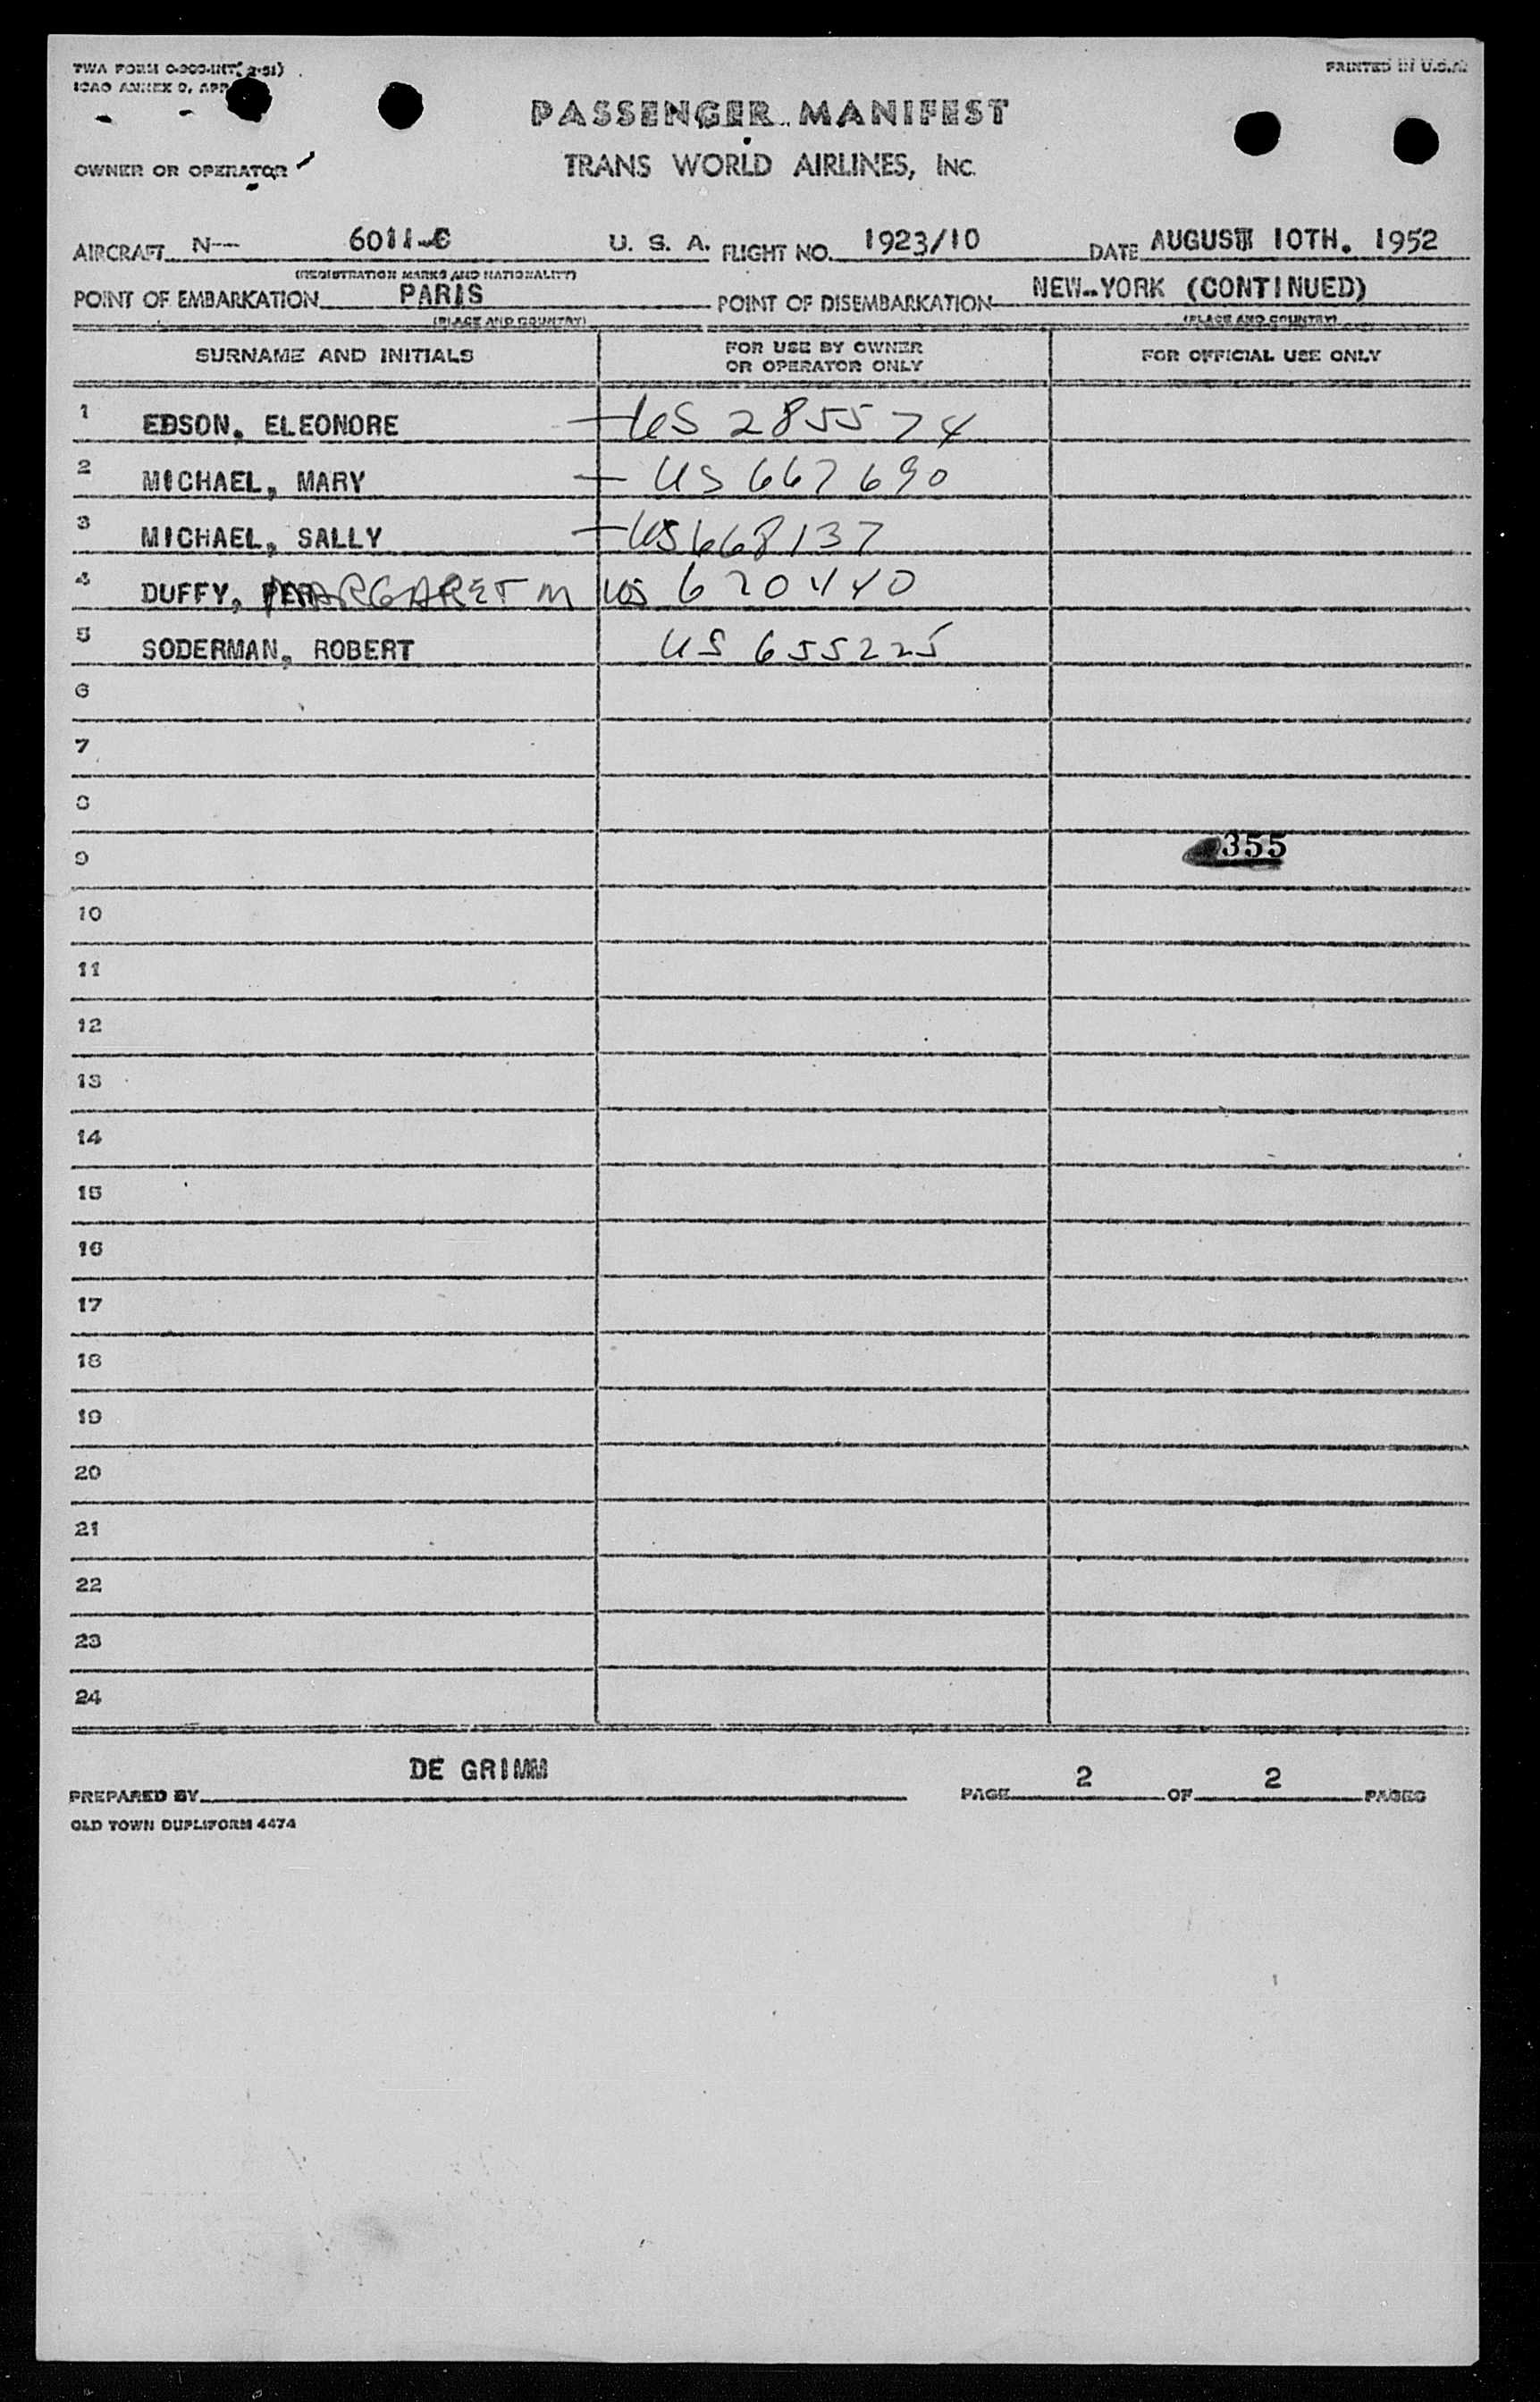 TWA FORM O-300-INT. 2-51)
ICAO ANNEX 9, APP
PRINTED IN U.S.A.
PASSENGER MANIFEST
OWNER OR OPERATOR
TRANS WORLD AIRLINES, INC.
AIRCRAFT N-- 6011-C U. S. A. FLIGHT NO. 1923/10 DATE AUGUST 10TH. 1952
(REGISTRATION MARKS AND NATIONALITY)
POINT OF EMBARKATION PARIS POINT OF DISEMBARKATION NEW-YORK (CONTINUED)
(PLACE AND COUNTRY) (PLACE AND COUNTRY)
SURNAME AND INITIALS FOR USE BY OWNER OR OPERATOR ONLY FOR OFFICIAL USE ONLY
1 EDSON, ELEONORE — US 285574
2 MICHAEL, MARY — US 667690
3 MICHAEL, SALLY — US 668137
4 DUFFY, MARGARET M US 620440
5 SODERMAN, ROBERT US 655225
6
7
8
9 355
10
11
12
13
14
15
16
17
18
19
20
21
22
23
24
PREPARED BY DE GRIMM PAGE 2 OF 2 PAGES
OLD TOWN DUPLIFORM 4474